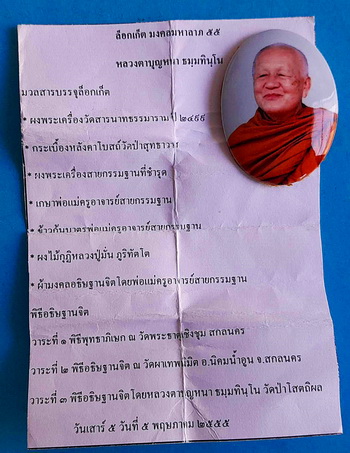 ล็อกเก็ต มงคลมหาลาภ ๕๕
หลวงตาบุญหนา ธมฺมทินฺโน
มวลสารบรรจุล็อกเก็ต
• ผงพระเครื่องวัดสารนาทธรรมาราม ปี ๒๔๙๙
• กระเบื้องหลังคาโบสถ์วัดป่าสุทธาวาส
• ผงพระเครื่องสายกรรมฐานที่ชำรุด
• เกษาพ่อแม่ครูอาจารย์สายกรรมฐาน
• ข้าวก้นบาตรพ่อแม่ครูอาจารย์สายกรรมฐาน
• ผงไม้กุฏิหลวงปู่มั่น ภูริทัตโต
• ผ้ามงคลอธิษฐานจิตโดยพ่อแม่ครูอาจารย์สายกรรมฐาน
พิธีอธิษฐานจิต
วาระที่ ๑ พิธีพุทธาภิเษก ณ วัดพระธาตุเชิงชุม สกลนคร
วาระที่ ๒ พิธีอธิษฐานจิต ณ วัดผาเทพนิมิต อ.นิคมน้ำอูน จ.สกลนคร
วาระที่ ๓ พิธีอธิษฐานจิตโดยหลวงตาบุญหนา ธมฺมทินฺโน วัดป่าโสตถิผล
วันเสาร์ ๕ วันที่ ๕ พฤษภาคม ๒๕๕๕